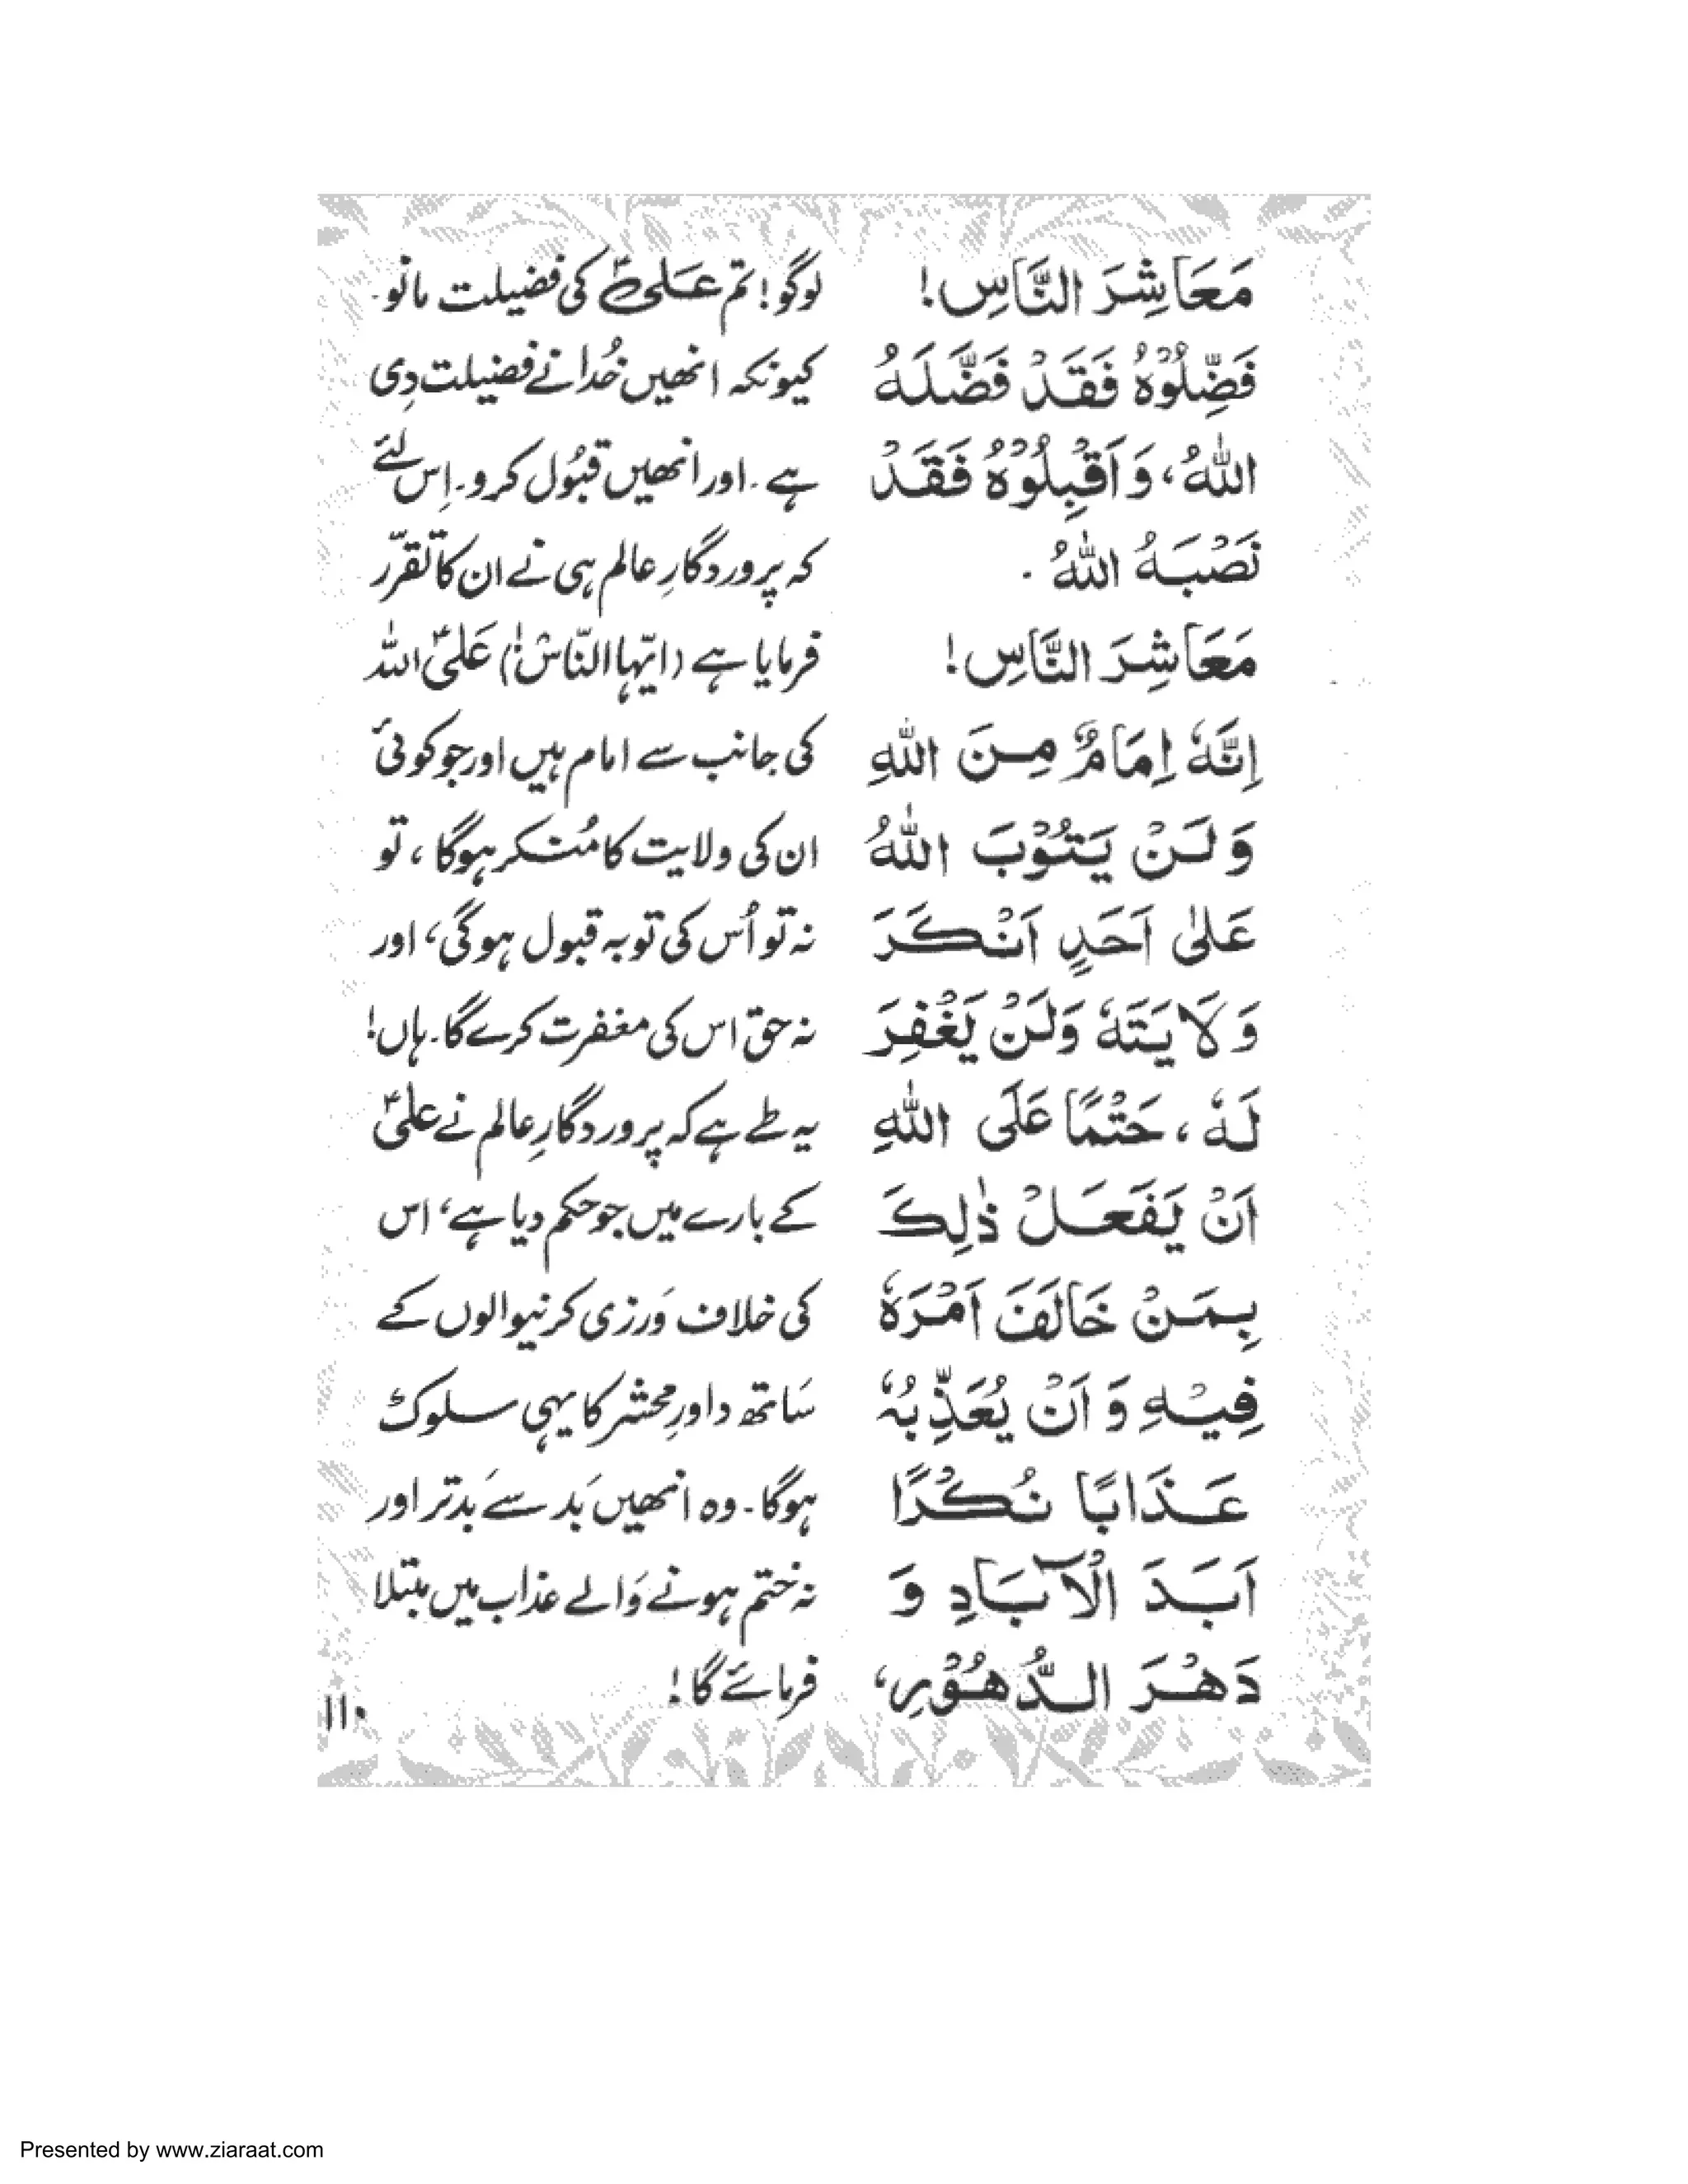 مَعَاشِرَ النَّاسِ!
فَضِّلُوْهُ فَقَدْ فَضَّلَهُ
اللّٰهُ، وَ اَقْبِلُوْهُ فَقَدْ
نَصْبَهُ اللّٰهُ .
مَعَاشِرَ النَّاسِ!
اِنَّهٗ اِمَامٌ مِنَ اللّٰهِ
وَ لَنْ يَتُوْبَ اللّٰهُ
عَلىٰ اَحَدٍ اَنْكَرَ
وَلَايَتَهٗ وَلَنْ يَغْفِرَ
لَهٗ، حَتْمًا عَلَى اللّٰهِ
اَنْ يَفَعَلْ ذٰلِكَ
بِمَنْ خَالَفَ اَمْرَهٗ
فِيْهِ وَ اَنْ يُعَذِّبُهٗ
عَذَابًا نُكْرًا
اَبَدَ الْآبَادِ وَ
دَهْرَ الدُّهُوْرِ،
لوگو! تم عَلیؑ کی فضیلت مانو۔
کیونکہ انھیں خُدا نے فضیلت دِی
ہے۔ اور انھیں قبُول کرو۔ اِس لئے
کہ پروردگارِ عالم ہی نے ان کا تقرّر
فرمایا ہے (ایّہا النّاسْ!) عَلیؑ اللہ
کی جانب سے امام ہیں اور جو کوئی
ان کی ولایت کا مُنکر ہوگا، تو
نہ تو اُس کی توبہ قبول ہوگی، اور
نہ حق اس کی مغفرت کرے گا۔ ہاں!
یہ طے ہے کہ پروردگارِ عالم نے علیؑ
کے بارے میں جو حکم دیا ہے، اس
کی خلاف وَرزی کرنیوالوں کے
سَاتھ داورِ محشر کا یہی سلوک
ہوگا۔ وہ انھیں بَد سے بَدتر اور
نہ ختم ہونے وَالے عذاب میں مبتلا
فرمائے گا!
۱۱۰
Presented by www.ziaraat.com